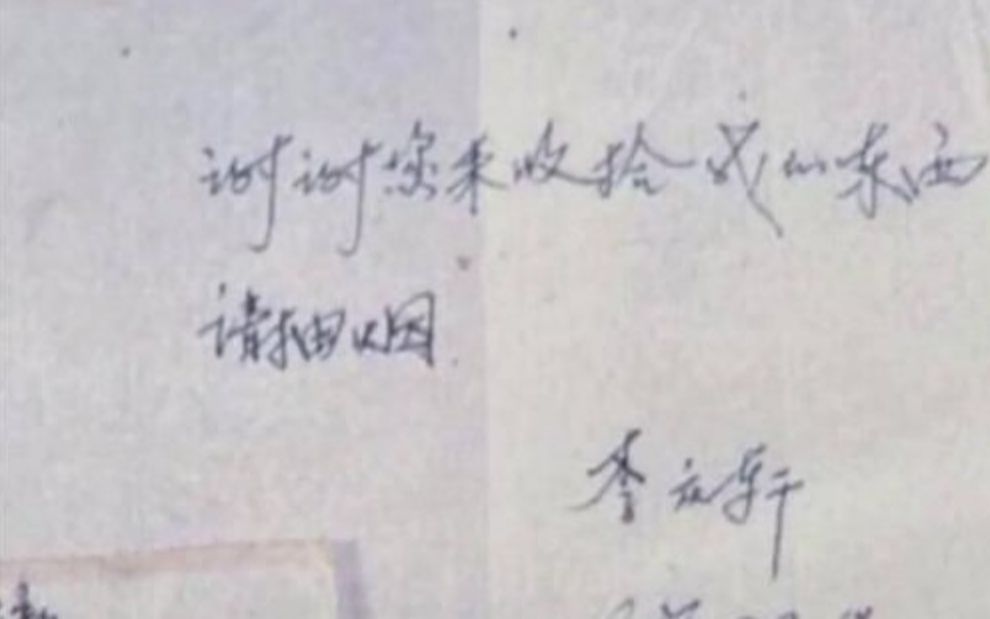 谢谢您来收拾我的东西
请抽烟
李文轩